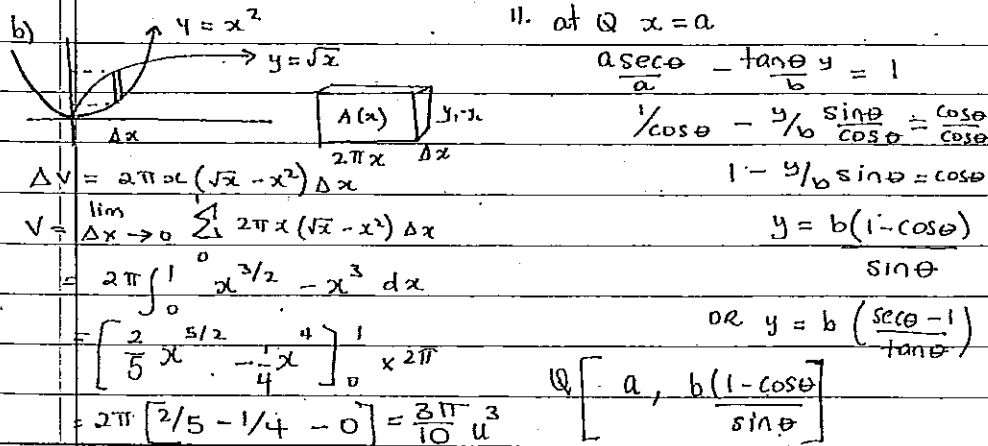 b)
y = x²
y = √x
Δx
A(x)
y₁-y₂
2πx
Δx
ΔV = 2πx(√x - x²) Δx
V = lim Δx→0 Σ₀¹ 2πx(√x - x²) Δx
= 2π∫₀¹ x^{3/2} - x³ dx
= [2/5 x^{5/2} - 1/4 x⁴]₀¹ × 2π
= 2π [2/5 - 1/4 - 0] = 3π/10 u³
11. at Q x = a
a secθ/a - tanθ/b y = 1
1/cosθ - y/b sinθ/cosθ = cosθ/cosθ
1 - y/b sinθ = cosθ
y = b(1-cosθ)/sinθ
OR y = b (secθ - 1/tanθ)
Q [a, b(1-cosθ)/sinθ]